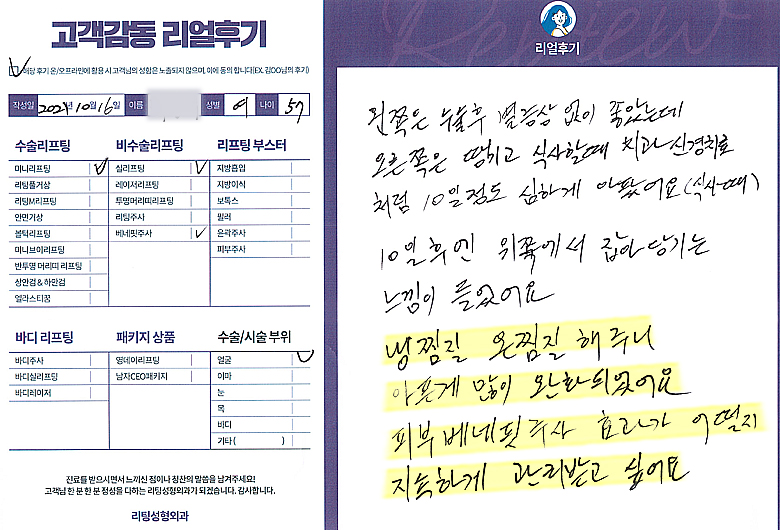 고객감동 리얼후기
해당 후기 온/오프라인에 활용 시 고객님의 성함은 노출되지 않으며, 이에 동의 합니다(EX. 김OO님의 후기)
작성일 2024년 10월 16일 이름 성별 여 나이 57
수술리프팅
미니리프팅
리팅풀거상
리팅M리프팅
안면거상
볼턱리프팅
미니브이리프팅
반투명 머리띠 리프팅
상안검 & 하안검
엘라스티꿈
비수술리프팅
실리프팅
레이저리프팅
투명머리띠리프팅
리팅주사
베네핏주사
리프팅 부스터
지방흡입
지방이식
보톡스
필러
윤곽주사
피부주사
바디 리프팅
바디주사
바디실리프팅
바디레이저
패키지 상품
영데이리프팅
남자CEO패키지
수술/시술 부위
얼굴
이마
눈
목
바디
기타 ( )
진료를 받으시면서 느끼신 점이나 칭찬의 말씀을 남겨주세요!
고객님 한 분 한 분 정성을 다하는 리팅성형외과가 되겠습니다. 감사합니다.
리팅성형외과
Review
리얼후기
왼쪽은 수술후 별증상 없이 좋았는데
오른쪽은 땅기고 식사할때 치과 신경치료
처럼 10일정도 심하게 아팠어요(식사때)
10일후엔 위쪽에서 잡아 당기는
느낌이 들었어요
냉찜질 온찜질 해주니
아픈게 많이 완화되었어요
피부 베네핏주사 효과가 어떨지
지속하게 관리받고 싶어요